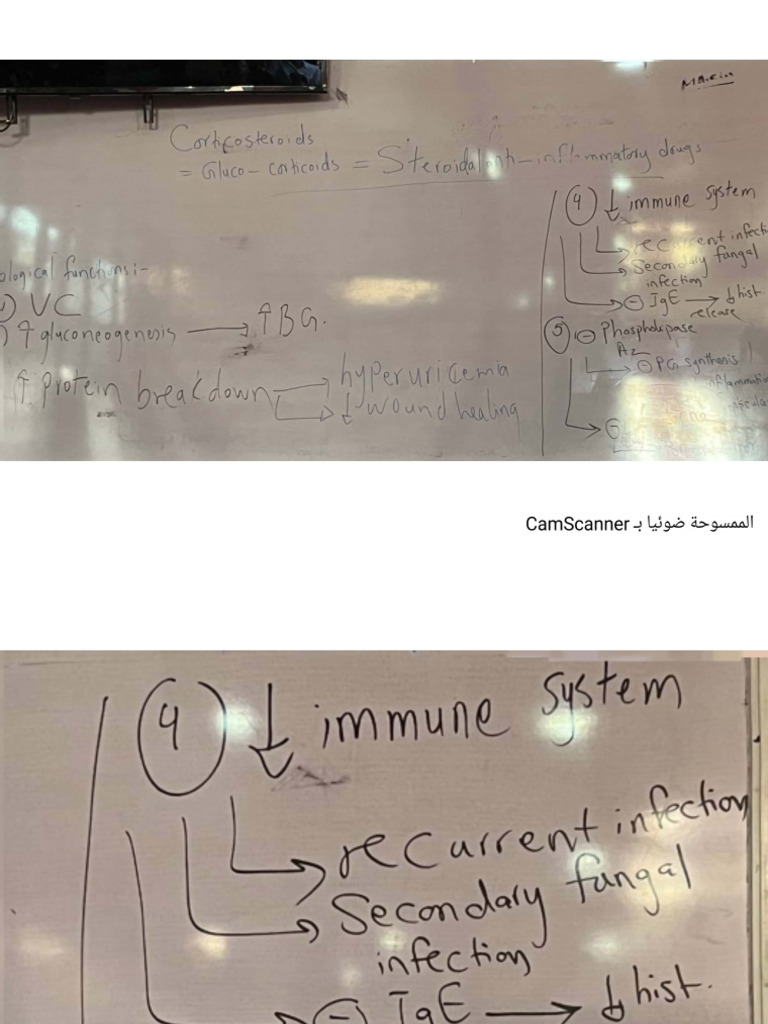 Corticosteroids
= Gluco-corticoids = Steroidal anti-inflammatory drugs
ological functions:-
VC
↑ gluconeogenesis → ↑BG.
↑ Protein breakdown → hyperuricemia
→ ↓ wound healing
4 ↓ immune system
→ recurrent infecti
→ Secondary fungal
infection
→ ⊖ IgE → ↓ hist.
release
5 ⊖ Phospholipase
A2
→ ⊖ PG synthesis
inflammatio
الممسوحة ضوئيا بـ CamScanner
4 ↓ immune system
→ recurrent infection
→ Secondary fungal
infection
→ ⊖ IgE → ↓ hist.